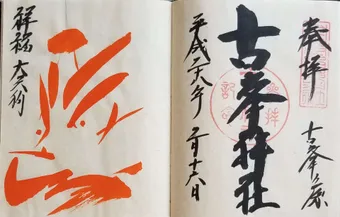 奉拝
古峯ヶ原
古峯神社
平成二八年
十六日
祥福
大天狗